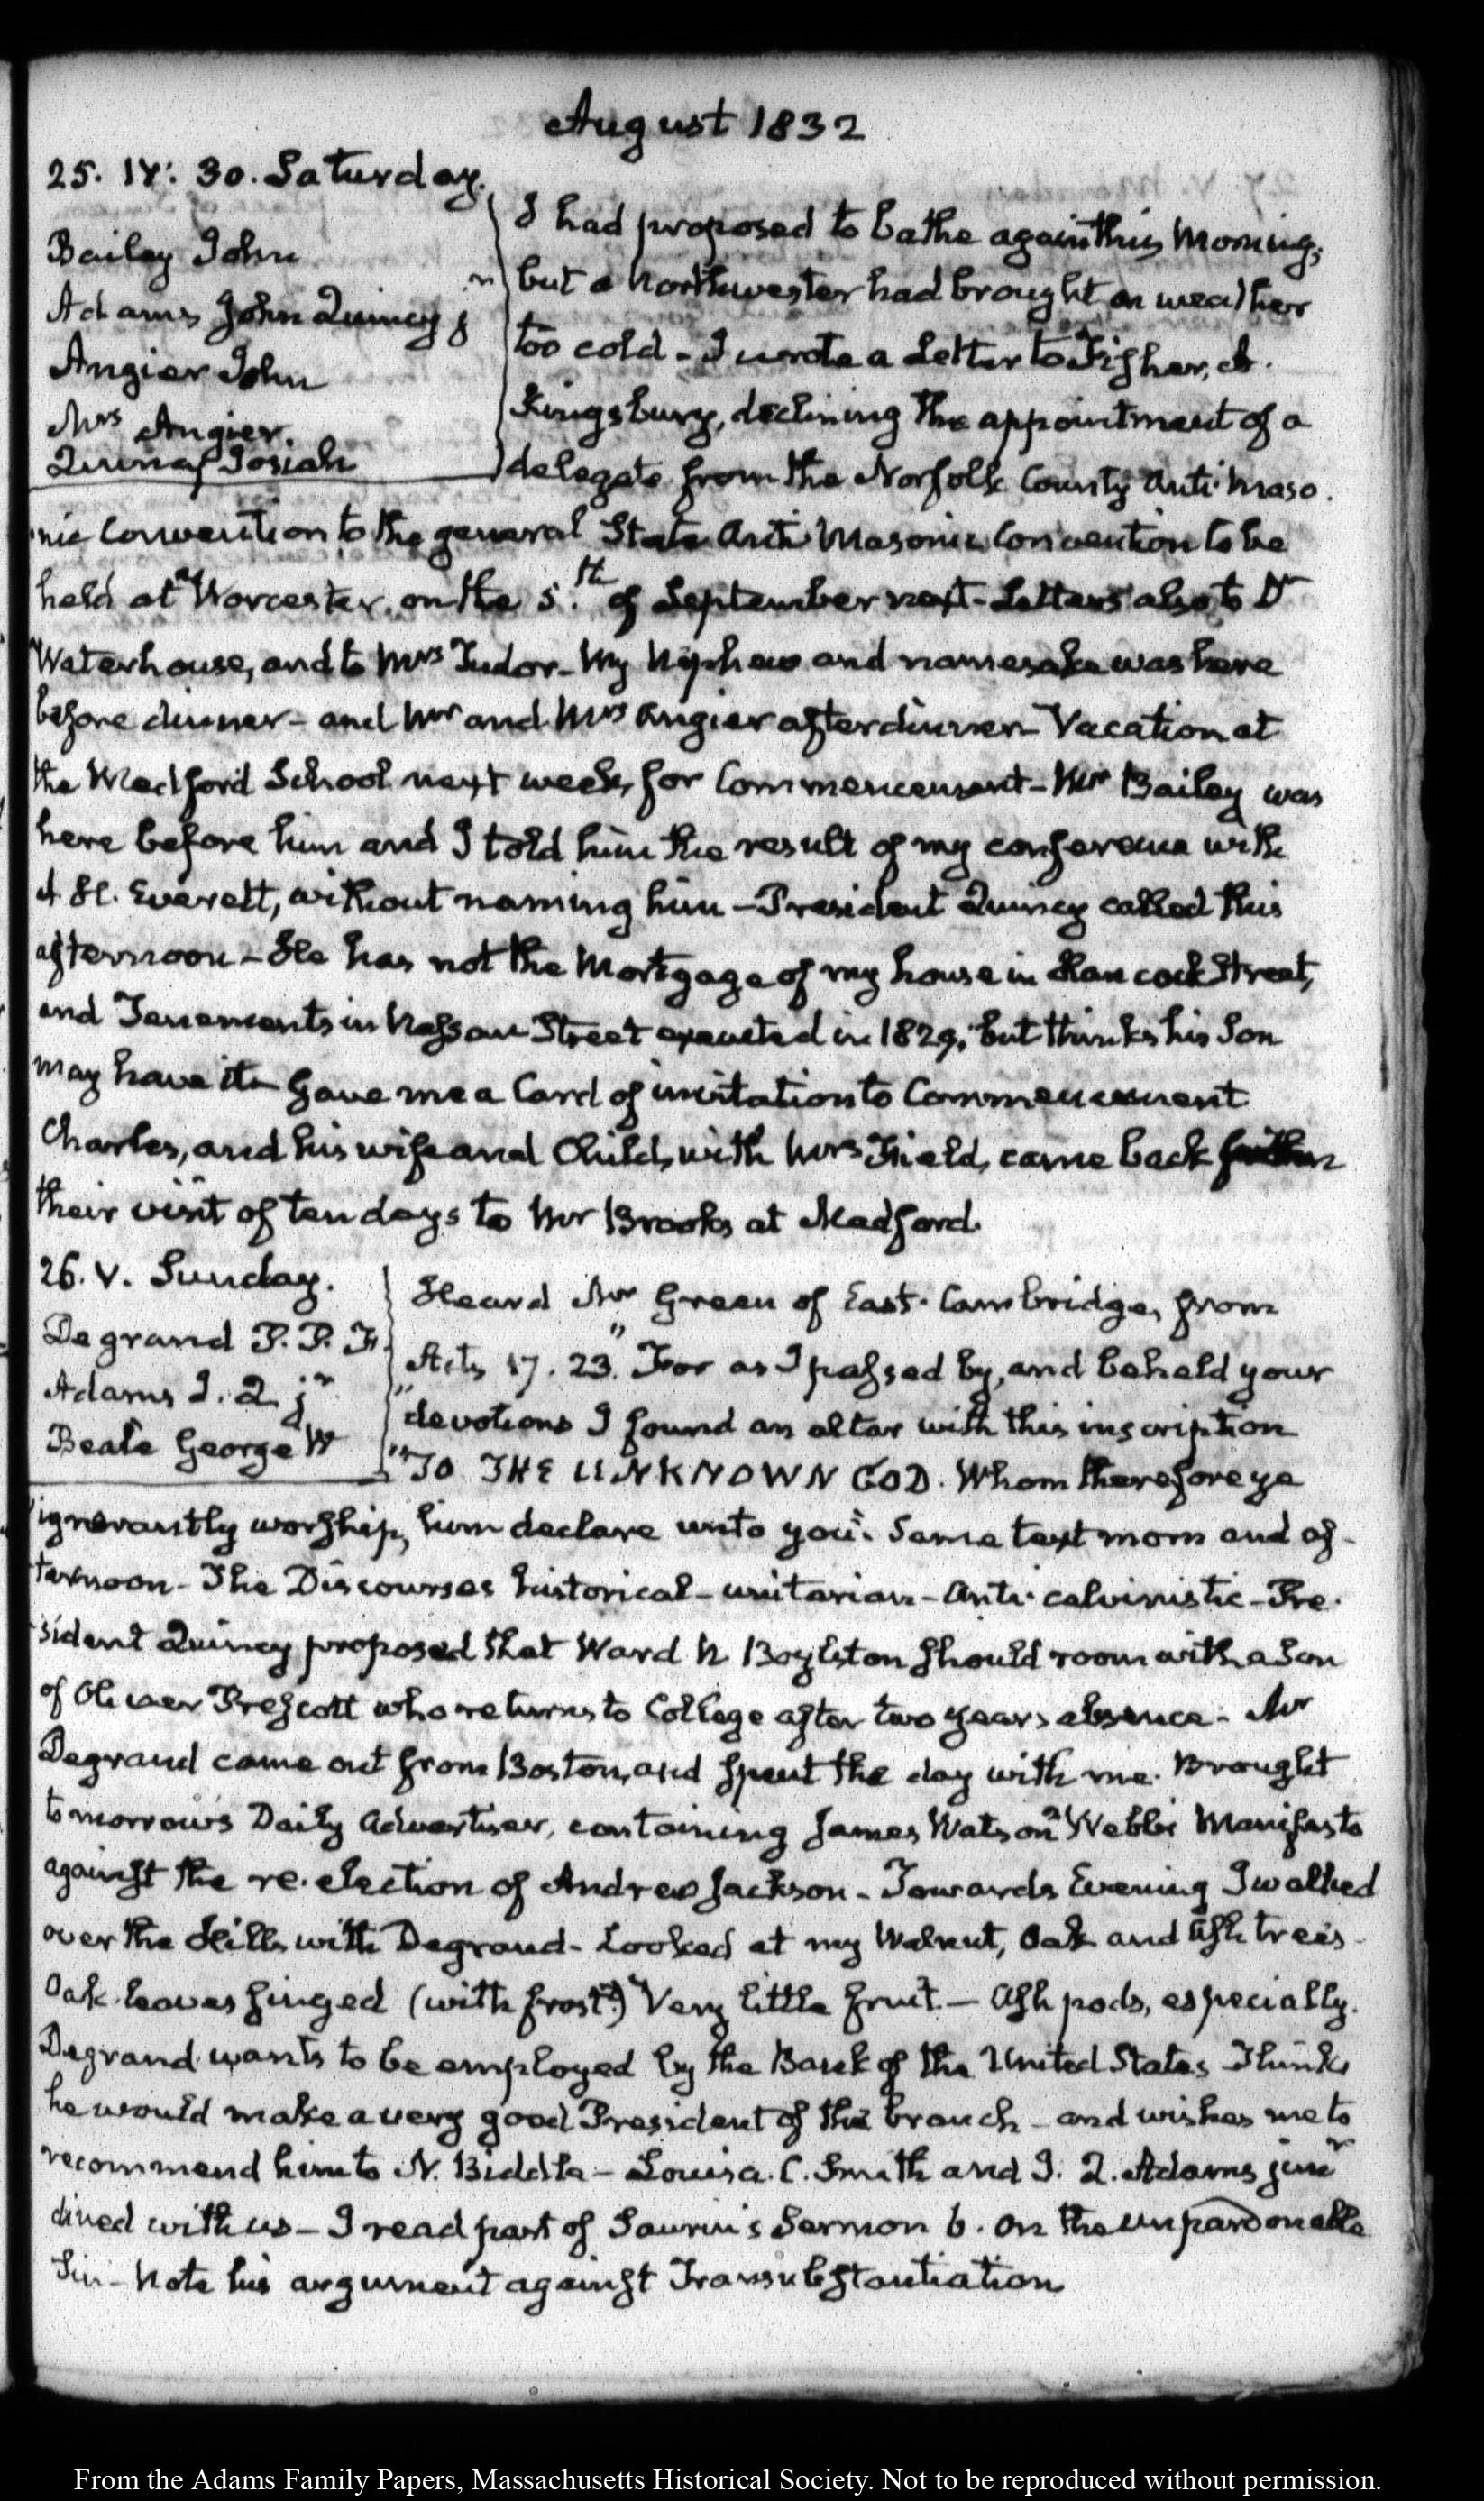 August 1832
25. IV: 30. Saturday.
Bailey John
Adams John Quincy jn
Angier John
Mrs Angier.
Quincy Josiah
I had proposed to bathe again this Morning;
but a Northwester had brought on weather
too cold - I wrote a Letter to Fisher, A.
Kingsbury, declining the appointment of a
delegate from the Norfolk County Anti-Maso-
nic Convention to the general State Anti Masonic Convention to be
held at Worcester, on the 5.th of September next - Letters also to Dr
Waterhouse, and to Mrs Tudor - My Nephew and namesake was here
before dinner - and Mr and Mrs Angier after dinner - Vacation at
the Medford School next week, for Commencement - Mr Bailey was
here before him and I told him the result of my conference with
A. H. Everett, without naming him - President Quincy called this
afternoon - He has not the Mortgage of my house in Hancock Street,
and Tenements in Nassau Street executed in 1829, but thinks his Son
may have it - Gave me a Card of invitation to Commencement
Charles, and his wife and Child, with Mrs Field, came back from
their visit of ten days to Mr Brooks at Medford.
26. V. Sunday.
Degrand P. P. F.
Adams J. Q. jr
Beale George W
Heard Mr Green of East-Cambridge, from
Acts 17. 23. "For as I passed by, and beheld your
"devotions I found an altar with this inscription
"TO THE UNKNOWN GOD. Whom therefore ye
ignorantly worship, him declare unto you". Same text morn and af-
ternoon - The Discourses historical - unitarian - Anti-calvinistic - Pre-
sident Quincy proposed that Ward N. Boylston should room with a Son
of Oliver Prescott who returns to College after two years absence - Mr
Degrand came out from Boston, and spent the day with me. Brought
tomorrow's Daily Advertiser, containing James Watson Webb's Manifesto
against the re-election of Andrew Jackson - Towards Evening I walked
over the Hills with Degrand - Looked at my Walnut, Oak and Ash trees -
Oak leaves singed (with frost?) Very little fruit - Ash pods, especially.
Degrand wants to be employed by the Bank of the United States Thinks
he would make a very good President of the branch - and wishes me to
recommend him to N. Biddle - Louisa. C. Smith and J. Q. Adams junr
dined with us - I read part of Saurin's Sermon 6. On the unpardonable
Sin - Note his argument against Transubstantiation
From the Adams Family Papers, Massachusetts Historical Society. Not to be reproduced without permission.